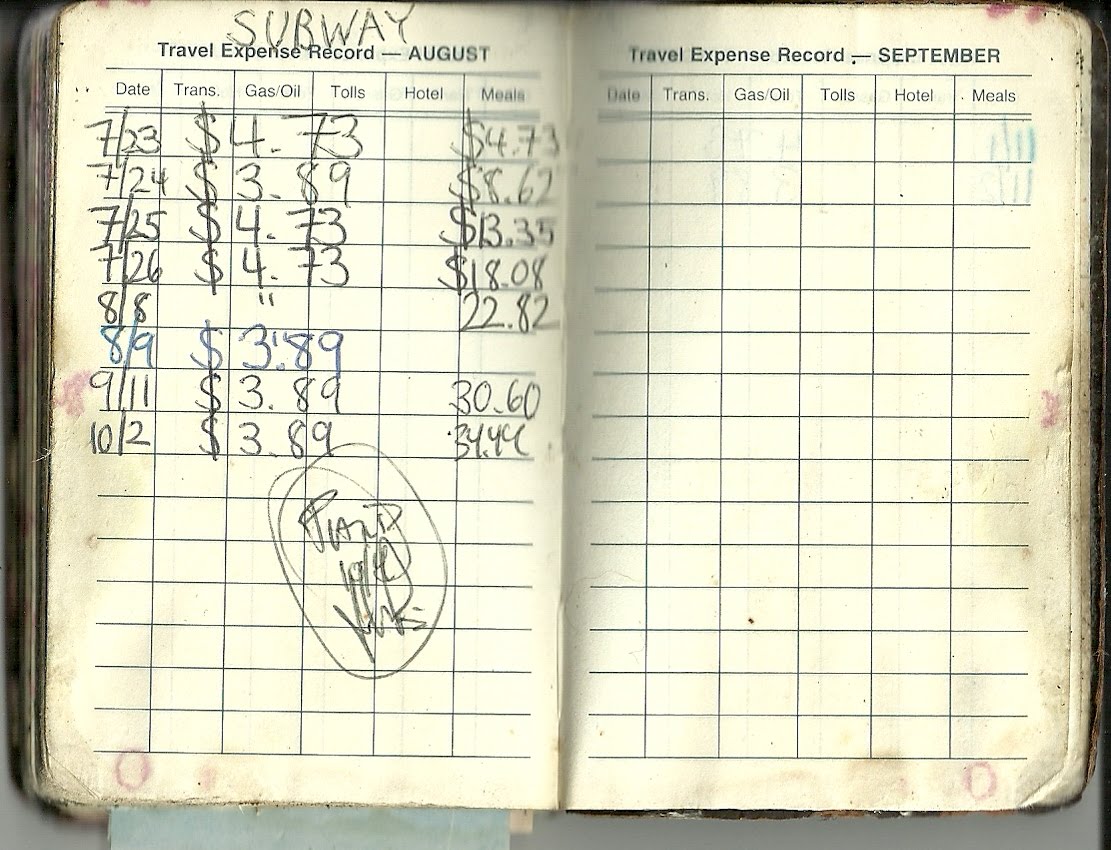 SUBWAY
Travel Expense Record — AUGUST
Date Trans. Gas/Oil Tolls Hotel Meals
7/23 $4.73 $4.73
7/24 $3.89 $8.62
7/25 $4.73 $13.35
7/26 $4.73 $18.08
8/8 " 22.82
8/9 $3.89
9/11 $3.89 30.60
10/2 $3.89
Travel Expense Record — SEPTEMBER
Date Trans. Gas/Oil Tolls Hotel Meals